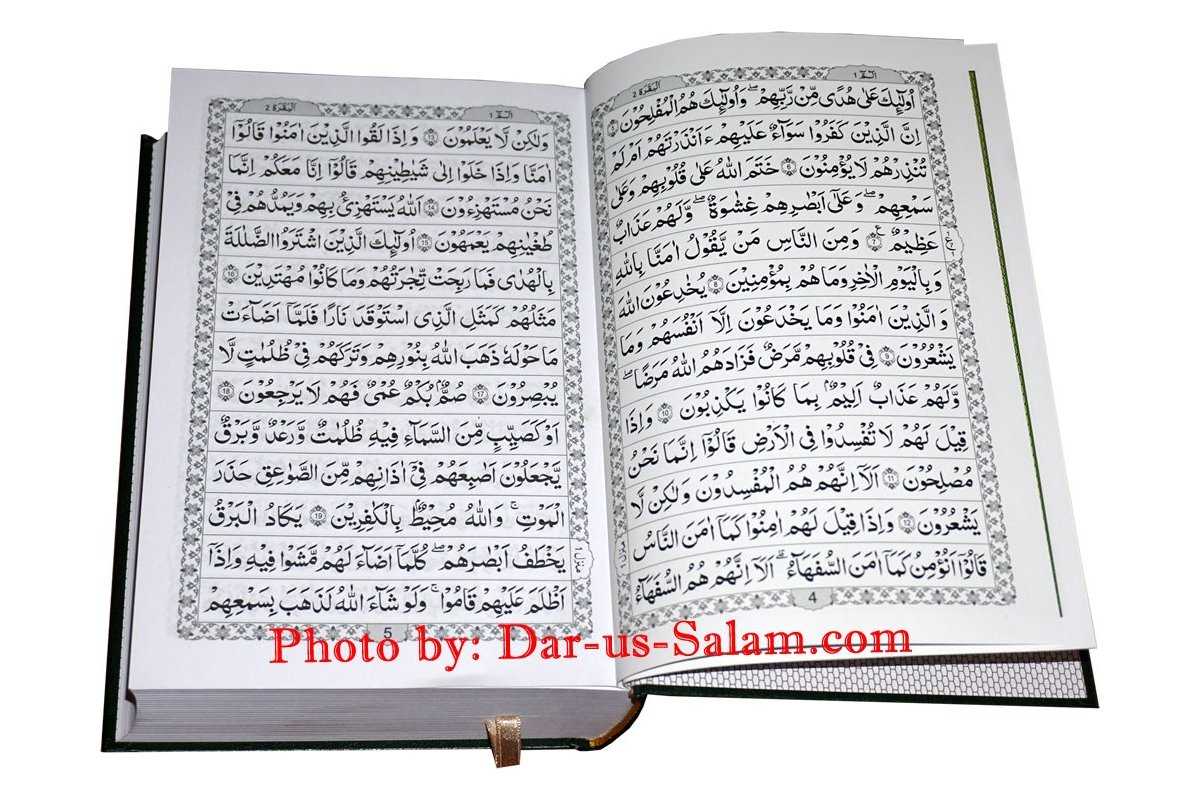 الٓمّٓ ١
اَلْبَقَرَة 2
اُولٰٓئِكَ عَلٰى هُدًى مِّنْ رَّبِّهِمْ ۖ وَاُولٰٓئِكَ هُمُ الْمُفْلِحُوْنَ 5
اِنَّ الَّذِيْنَ كَفَرُوْا سَوَآءٌ عَلَيْهِمْ ءَاَنْذَرْتَهُمْ اَمْ لَمْ
تُنْذِرْهُمْ لَا يُؤْمِنُوْنَ 6 خَتَمَ اللّٰهُ عَلٰى قُلُوْبِهِمْ وَعَلٰى
سَمْعِهِمْ ۖ وَعَلٰٓى اَبْصَارِهِمْ غِشَاوَةٌ ۖ وَّلَهُمْ عَذَابٌ
عَظِيْمٌ 7 ع وَمِنَ النَّاسِ مَنْ يَّقُوْلُ اٰمَنَّا بِاللّٰهِ
وَبِالْيَوْمِ الْاٰخِرِ وَمَا هُمْ بِمُؤْمِنِيْنَ 8 يُخٰدِعُوْنَ اللّٰهَ
وَالَّذِيْنَ اٰمَنُوْا وَمَا يَخْدَعُوْنَ اِلَّآ اَنْفُسَهُمْ وَمَا
يَشْعُرُوْنَ 9 فِيْ قُلُوْبِهِمْ مَّرَضٌ فَزَادَهُمُ اللّٰهُ مَرَضًا ۖ
وَلَهُمْ عَذَابٌ اَلِيْمٌۢ بِمَا كَانُوْا يَكْذِبُوْنَ 10 وَاِذَا
قِيْلَ لَهُمْ لَا تُفْسِدُوْا فِى الْاَرْضِ قَالُوْٓا اِنَّمَا نَحْنُ
مُصْلِحُوْنَ 11 اَلَآ اِنَّهُمْ هُمُ الْمُفْسِدُوْنَ وَلٰكِنْ لَّا
يَشْعُرُوْنَ 12 وَاِذَا قِيْلَ لَهُمْ اٰمِنُوْا كَمَآ اٰمَنَ النَّاسُ
قَالُوْٓا اَنُؤْمِنُ كَمَآ اٰمَنَ السُّفَهَآءُ ۗ اَلَآ اِنَّهُمْ هُمُ السُّفَهَآءُ
4
منزل ١
الٓمّٓ ١
اَلْبَقَرَة 2
وَلٰكِنْ لَّا يَعْلَمُوْنَ 13 وَاِذَا لَقُوا الَّذِيْنَ اٰمَنُوْا قَالُوْٓا
اٰمَنَّا وَاِذَا خَلَوْا اِلٰى شَيٰطِيْنِهِمْ قَالُوْٓا اِنَّا مَعَكُمْ اِنَّمَا
نَحْنُ مُسْتَهْزِءُوْنَ 14 اَللّٰهُ يَسْتَهْزِئُ بِهِمْ وَيَمُدُّهُمْ فِيْ
طُغْيٰنِهِمْ يَعْمَهُوْنَ 15 اُولٰٓئِكَ الَّذِيْنَ اشْتَرَوُا الضَّلٰلَةَ
بِالْهُدٰى فَمَا رَبِحَتْ تِّجَارَتُهُمْ وَمَا كَانُوْا مُهْتَدِيْنَ 16
مَثَلُهُمْ كَمَثَلِ الَّذِى اسْتَوْقَدَ نَارًا فَلَمَّآ اَضَآءَتْ
مَا حَوْلَهٗ ذَهَبَ اللّٰهُ بِنُوْرِهِمْ وَتَرَكَهُمْ فِيْ ظُلُمٰتٍ لَّا
يُبْصِرُوْنَ 17 صُمٌّۢ بُكْمٌ عُمْيٌ فَهُمْ لَا يَرْجِعُوْنَ 18
اَوْ كَصَيِّبٍ مِّنَ السَّمَآءِ فِيْهِ ظُلُمٰتٌ وَّرَعْدٌ وَّبَرْقٌ
يَّجْعَلُوْنَ اَصَابِعَهُمْ فِيْٓ اٰذَانِهِمْ مِّنَ الصَّوَاعِقِ حَذَرَ
الْمَوْتِ ۚ وَاللّٰهُ مُحِيْطٌۢ بِالْكٰفِرِيْنَ 19 يَكَادُ الْبَرْقُ
يَخْطَفُ اَبْصَارَهُمْ ۖ كُلَّمَآ اَضَآءَ لَهُمْ مَّشَوْا فِيْهِ وَاِذَآ
اَظْلَمَ عَلَيْهِمْ قَامُوْا ۚ وَلَوْ شَآءَ اللّٰهُ لَذَهَبَ بِسَمْعِهِمْ
5
منزل ١
Photo by: Dar-us-Salam.com